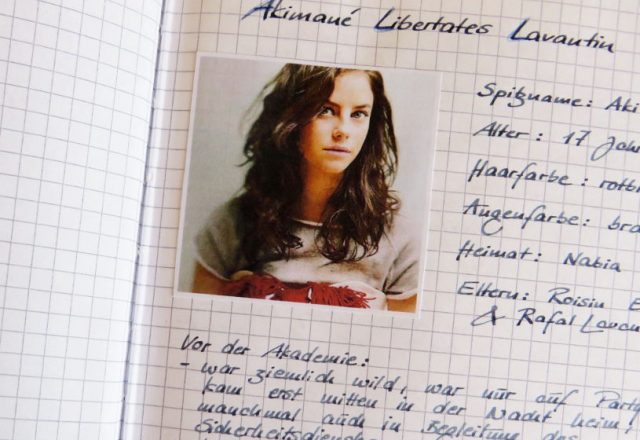 Akimané Libertates Lavantin
Spitzname: Aki
Alter: 17 Jah
Haarfarbe: rotbr
Augenfarbe: bra
Heimat: Nabia
Eltern: Roisin E
& Rafal Lavan
Vor der Akademie:
- war ziemlich wild, war nur auf Part
kam erst mitten in der Nacht heim,
manchmal auch in Begleitung des
Sicherheitsdienstes